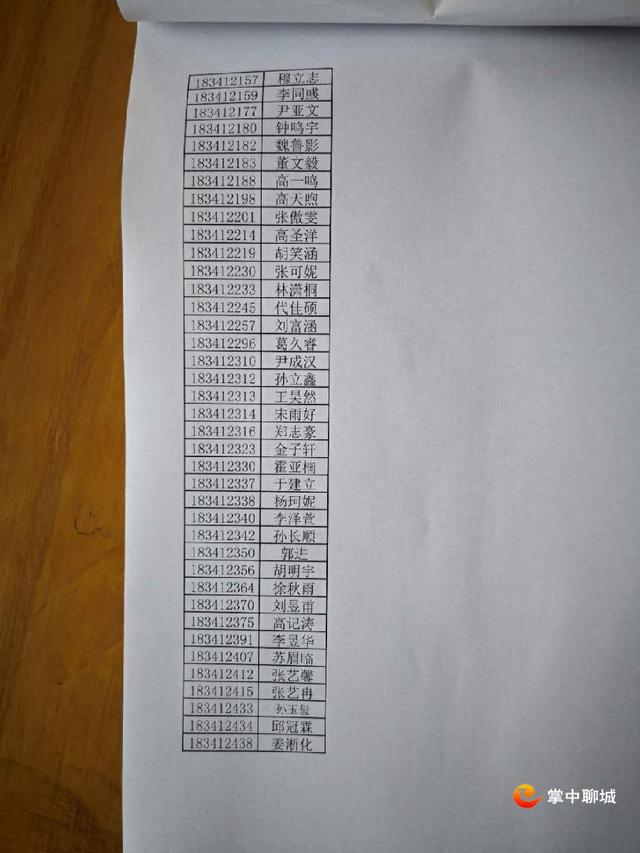 183412157 穆立志
183412159 李同彧
183412177 尹亚文
183412180 钟鸣宇
183412182 魏鲁影
183412183 董文毅
183412188 高一鸣
183412198 高天煦
183412201 张傲雯
183412214 高圣洋
183412219 胡笑涵
183412230 张可妮
183412233 林潇桐
183412245 代佳硕
183412257 刘富涵
183412296 葛久睿
183412310 尹成汉
183412312 孙立鑫
183412313 王昊然
183412314 宋雨好
183412316 郑志豪
183412323 金子轩
183412330 霍亚楠
183412337 于建立
183412338 杨珂妮
183412340 李泽萱
183412342 孙长顺
183412350 郭进
183412356 胡明宇
183412364 徐秋雨
183412370 刘昱甫
183412375 高记涛
183412391 李昱华
183412407 苏眉临
183412412 张艺馨
183412415 张艺冉
183412433 孙玉玺
183412434 邱冠霖
183412438 姜淅化
掌中聊城